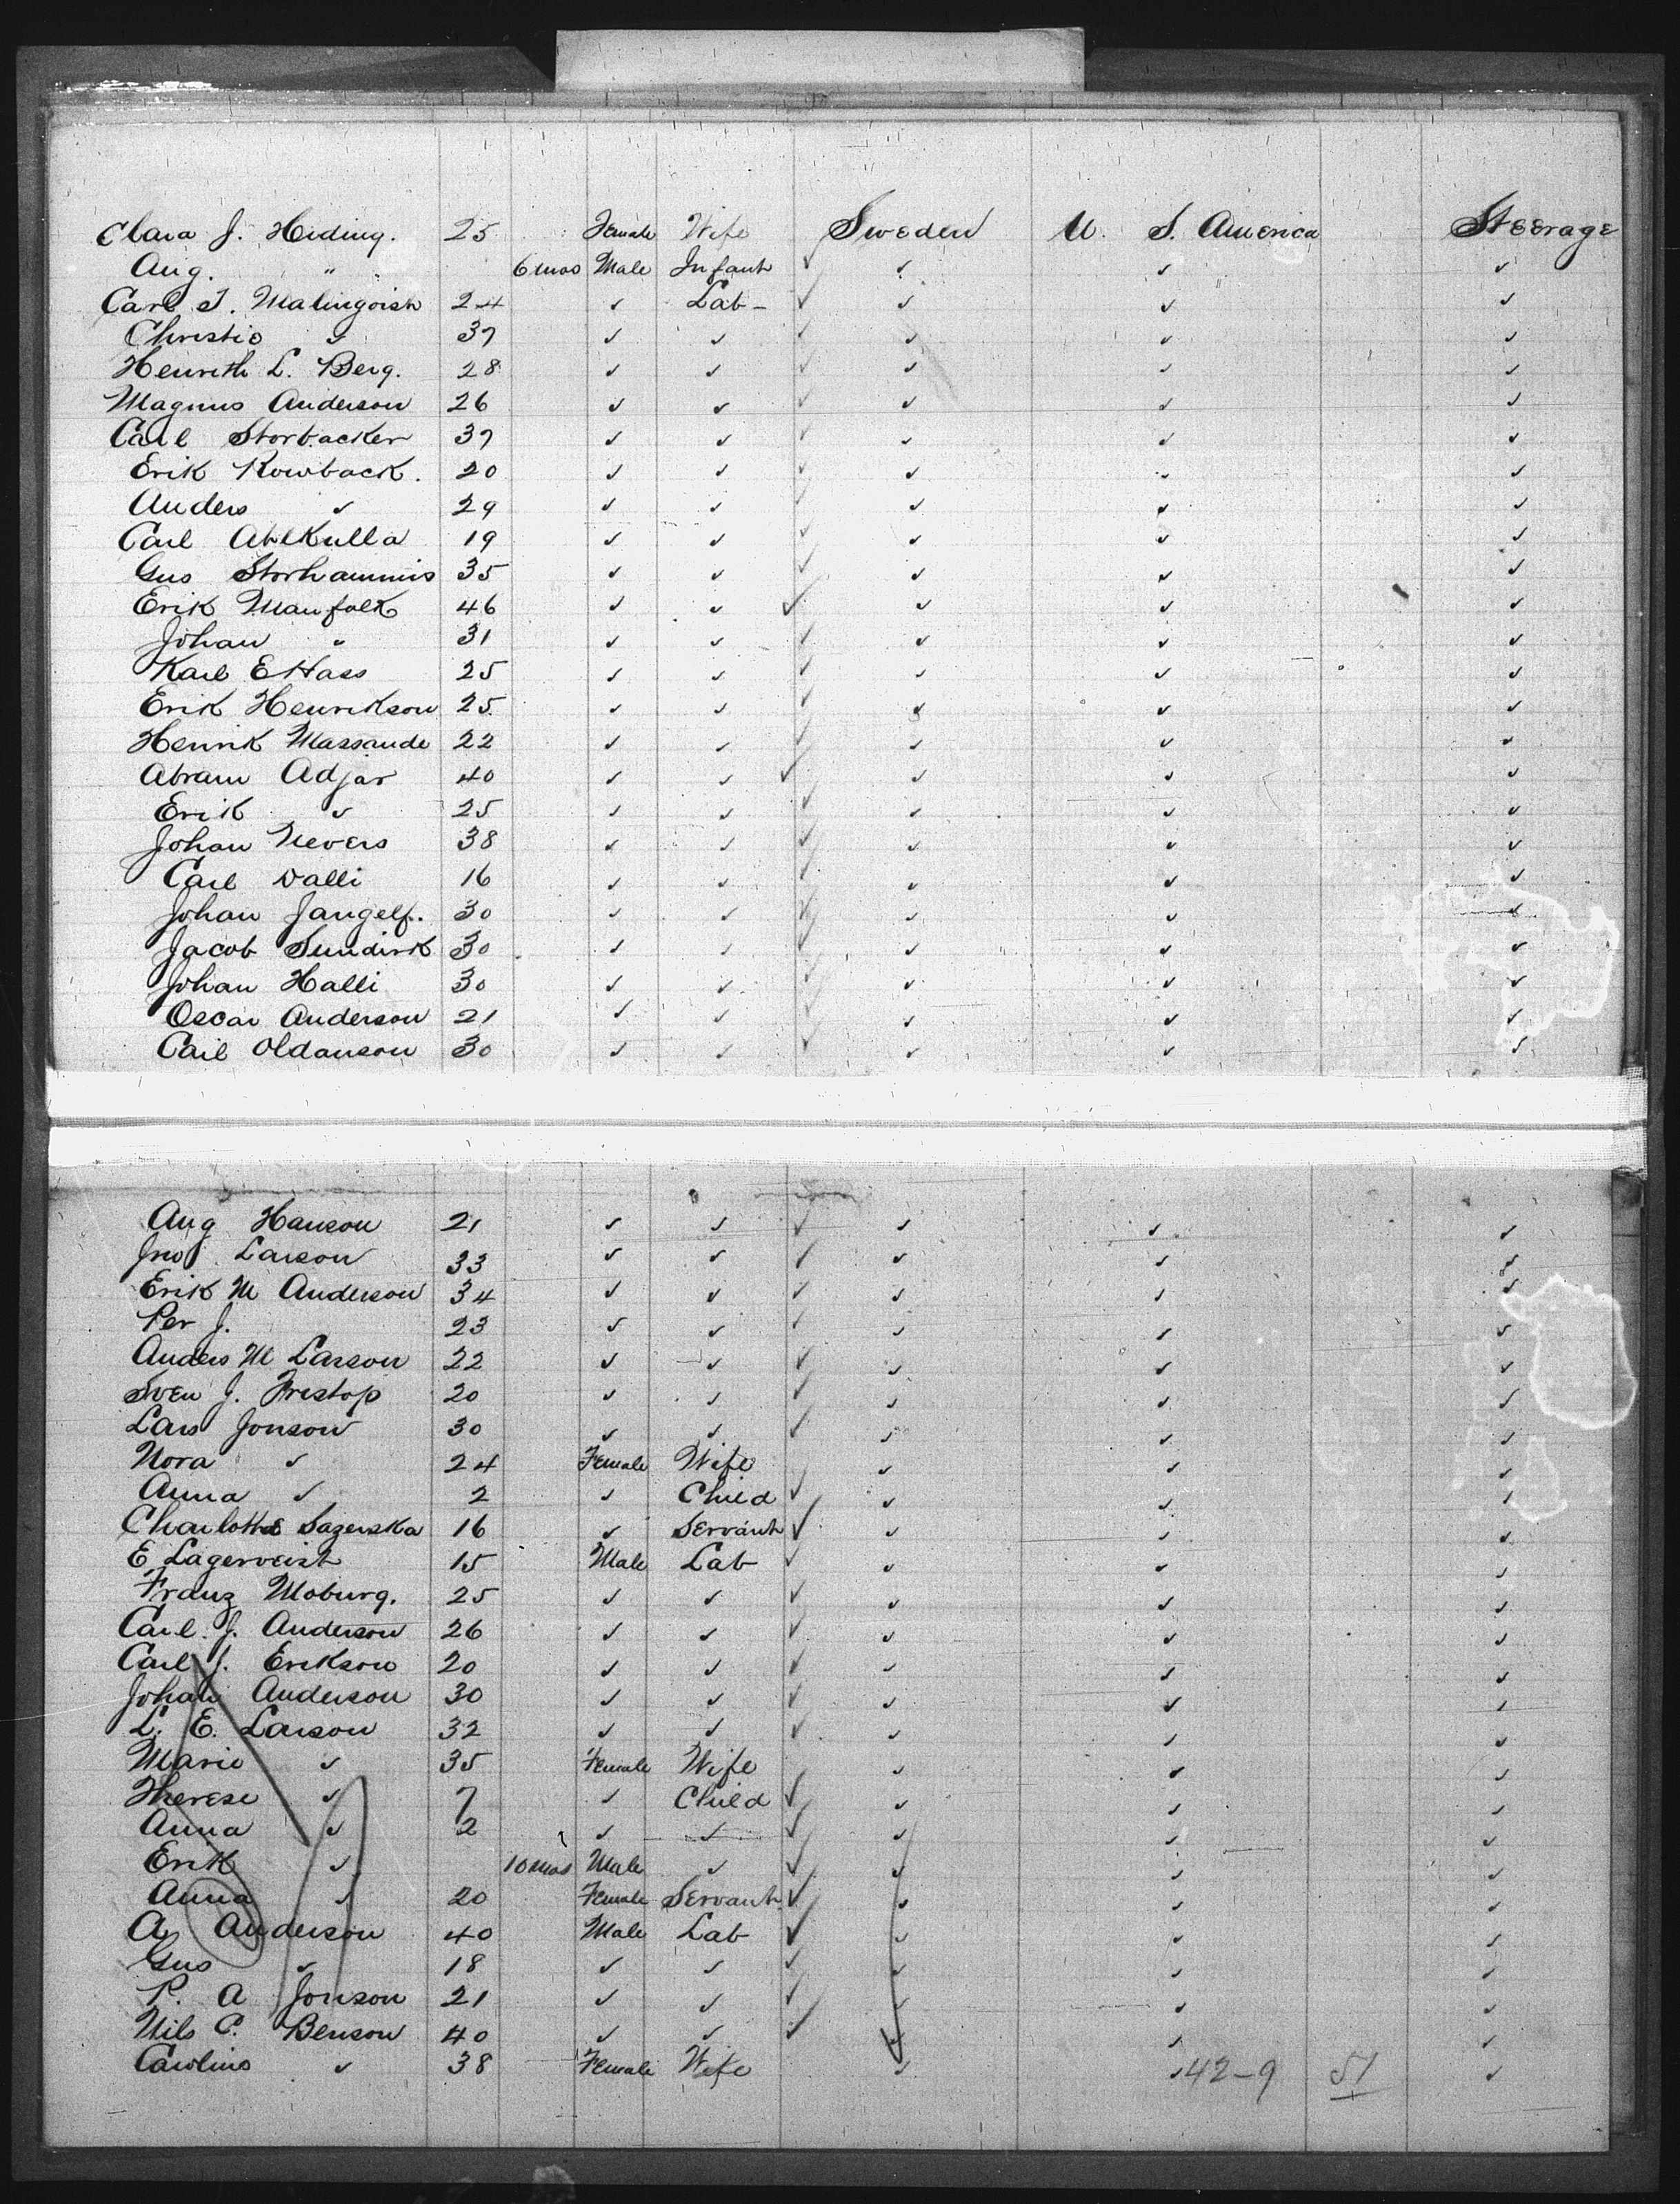 Clara J. Heding. 25 Female Wife Sweden U. S. America Steerage
Aug. " 6 mos Male Infant ✓ ✓ ✓ ✓
Carl J. Malinqoish 24 ✓ Lab- ✓ ✓ ✓ ✓
Christie ✓ 37 ✓ ✓ ✓ ✓ ✓ ✓
Henreth L. Berg. 28 ✓ ✓ ✓ ✓ ✓ ✓
Magnus Anderson 26 ✓ ✓ ✓ ✓ ✓ ✓
Carl Storbacker 37 ✓ ✓ ✓ ✓ ✓ ✓
Erik Rowback. 20 ✓ ✓ ✓ ✓ ✓ ✓
Anders ✓ 29 ✓ ✓ ✓ ✓ ✓ ✓
Carl Ablkulla 19 ✓ ✓ ✓ ✓ ✓ ✓
Gus Storhammis 35 ✓ ✓ ✓ ✓ ✓ ✓
Erik Manfolk 46 ✓ ✓ ✓ ✓ ✓ ✓
Johan " 31 ✓ ✓ ✓ ✓ ✓ ✓
Karl E Hass 25 ✓ ✓ ✓ ✓ ✓ ✓
Erik Henrikson 25 ✓ ✓ ✓ ✓ ✓ ✓
Henrik Massande 22 ✓ ✓ ✓ ✓ ✓ ✓
Abram Adjar 40 ✓ ✓ ✓ ✓ ✓ ✓
Erik ✓ 25 ✓ ✓ ✓ ✓ ✓ ✓
Johan Nevers 38 ✓ ✓ ✓ ✓ ✓ ✓
Carl Dalli 16 ✓ ✓ ✓ ✓ ✓ ✓
Johan Jangelf. 30 ✓ ✓ ✓ ✓ ✓ ✓
Jacob Sundirk 30 ✓ ✓ ✓ ✓ ✓ ✓
Johan Halli 30 ✓ ✓ ✓ ✓ ✓ ✓
Oscar Anderson 21 ✓ ✓ ✓ ✓ ✓ ✓
Carl Oldanson 30 ✓ ✓ ✓ ✓ ✓ ✓
Aug Hanson 21 ✓ ✓ ✓ ✓ ✓ ✓
Jno J. Larson 33 ✓ ✓ ✓ ✓ ✓ ✓
Erik M Anderson 34 ✓ ✓ ✓ ✓ ✓ ✓
Per J. 23 ✓ ✓ ✓ ✓ ✓ ✓
Anders M Larson 22 ✓ ✓ ✓ ✓ ✓ ✓
Sven J. Frestop 20 ✓ ✓ ✓ ✓ ✓ ✓
Lars Jonson 30 ✓ ✓ ✓ ✓ ✓ ✓
Nora ✓ 24 Female Wife ✓ ✓ ✓ ✓
Anna ✓ 2 ✓ Child ✓ ✓ ✓ ✓
Charlotte Sagerska 16 ✓ Servant ✓ ✓ ✓ ✓
E Lagerveist 15 Male Lab ✓ ✓ ✓ ✓
Franz Moburg. 25 ✓ ✓ ✓ ✓ ✓ ✓
Carl. J. Anderson 26 ✓ ✓ ✓ ✓ ✓ ✓
Carl J. Erikson 20 ✓ ✓ ✓ ✓ ✓ ✓
Johan Anderson 30 ✓ ✓ ✓ ✓ ✓ ✓
L. E. Larson 32 ✓ ✓ ✓ ✓ ✓ ✓
Marie ✓ 35 Female Wife ✓ ✓ ✓
Therese ✓ 7 ✓ Child ✓ ✓ ✓ ✓
Anna ✓ 2 ✓ ✓ ✓ ✓ ✓ ✓
Erik ✓ 10 mos Male ✓ ✓ ✓ ✓ ✓
Anna ✓ 20 Female Servant ✓ ✓ ✓ ✓
A. Anderson 40 Male Lab ✓ ✓ ✓ ✓
Gus ✓ 18 ✓ ✓ ✓ ✓ ✓ ✓
P. A Jonson 21 ✓ ✓ ✓ ✓ ✓ ✓
Nils C. Benson 40 ✓ ✓ ✓ ✓ ✓ ✓
Carolins ✓ 38 Female Wife ✓ ✓ 42-9 51 ✓